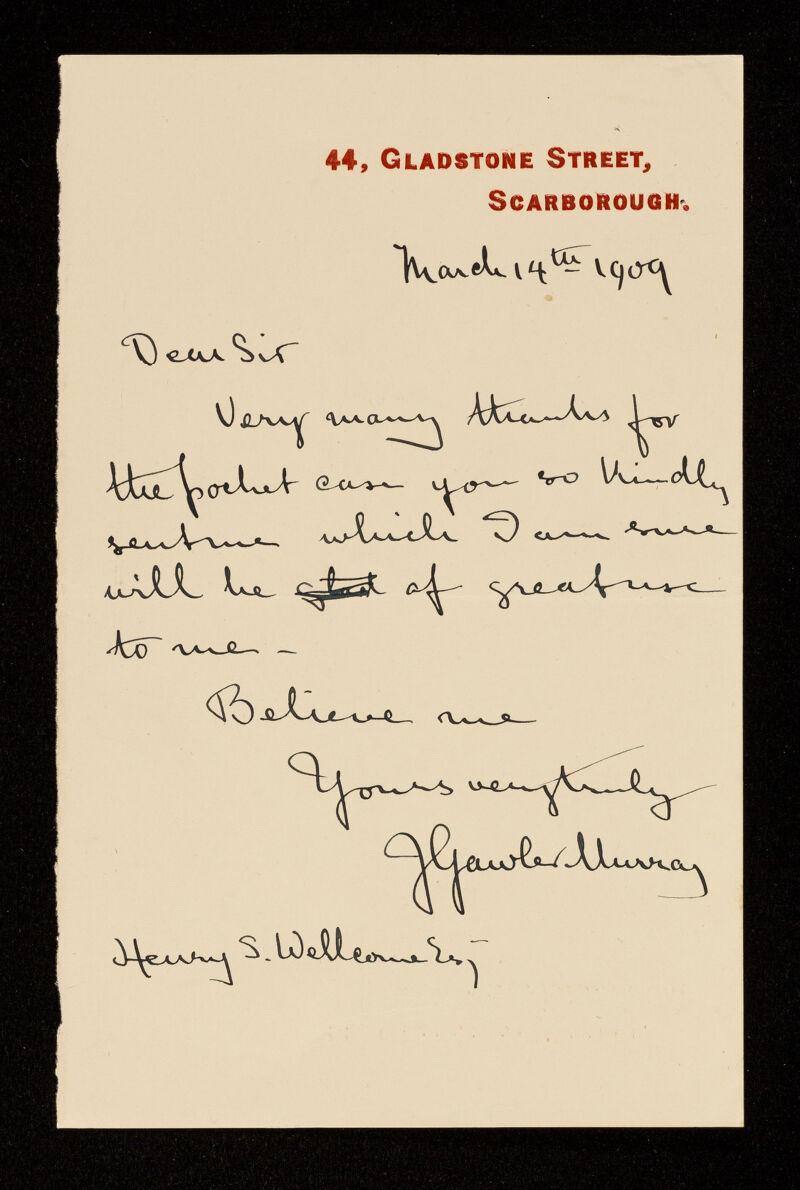 44, GLADSTONE STREET,
SCARBOROUGH.
March 14th 1909
Dear Sir
Very many thanks for
the pocket case you so kindly
sent me which I am sure
will be glad of great use
to me -
Believe me
Yours very truly
J Gawler Murray
Henry S. Wellcome Esq